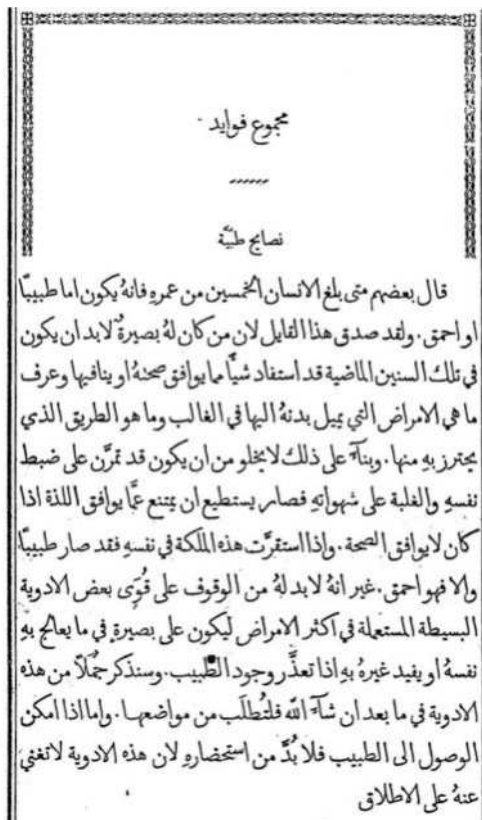 مجموع فوايد
نصايح طبيَّة
قال بعضهم متى بلغ الانسان الخمسين من عمرهِ فانهُ يكون اما طبيبًا
او احمق. ولقد صدق هذا القايل لان من كان لهُ بصيرةٌ لابد ان يكون
في تلك السنين الماضية قد استفاد شيأً مما يوافق صحتهُ او ينافيها وعرف
ما هي الامراض التي يميل بدنهُ اليها في الغالب وما هو الطريق الذي
يحترز بهِ منها. وبنآءً على ذلك لا يخلو من ان يكون قد تمرَّن على ضبط
نفسهِ والغلبة على شهواتهِ فصار يستطيع ان يمتنع عمَّا يوافق اللذة اذا
كان لا يوافق الصحة. واذا استقرَّت هذه المَلَكة في نفسهِ فقد صار طبيبًا
والا فهو احمق. غير انهُ لا بد لهُ من الوقوف على قُوَى بعض الادوية
البسيطة المستعملة في اكثر الامراض ليكون على بصيرةٍ في ما يعالج بهِ
نفسهُ او يفيد غيرهُ بهِ اذا تعذَّر وجود الطبيب. وسنذكر جُمَلًا من هذه
الادوية في ما بعد ان شآءَ الله فلتُطلَب من مواضعها. واما اذا امكن
الوصول الى الطبيب فلا بُدَّ من استحضارهِ لان هذه الادوية لا تغني
عنهُ على الاطلاق